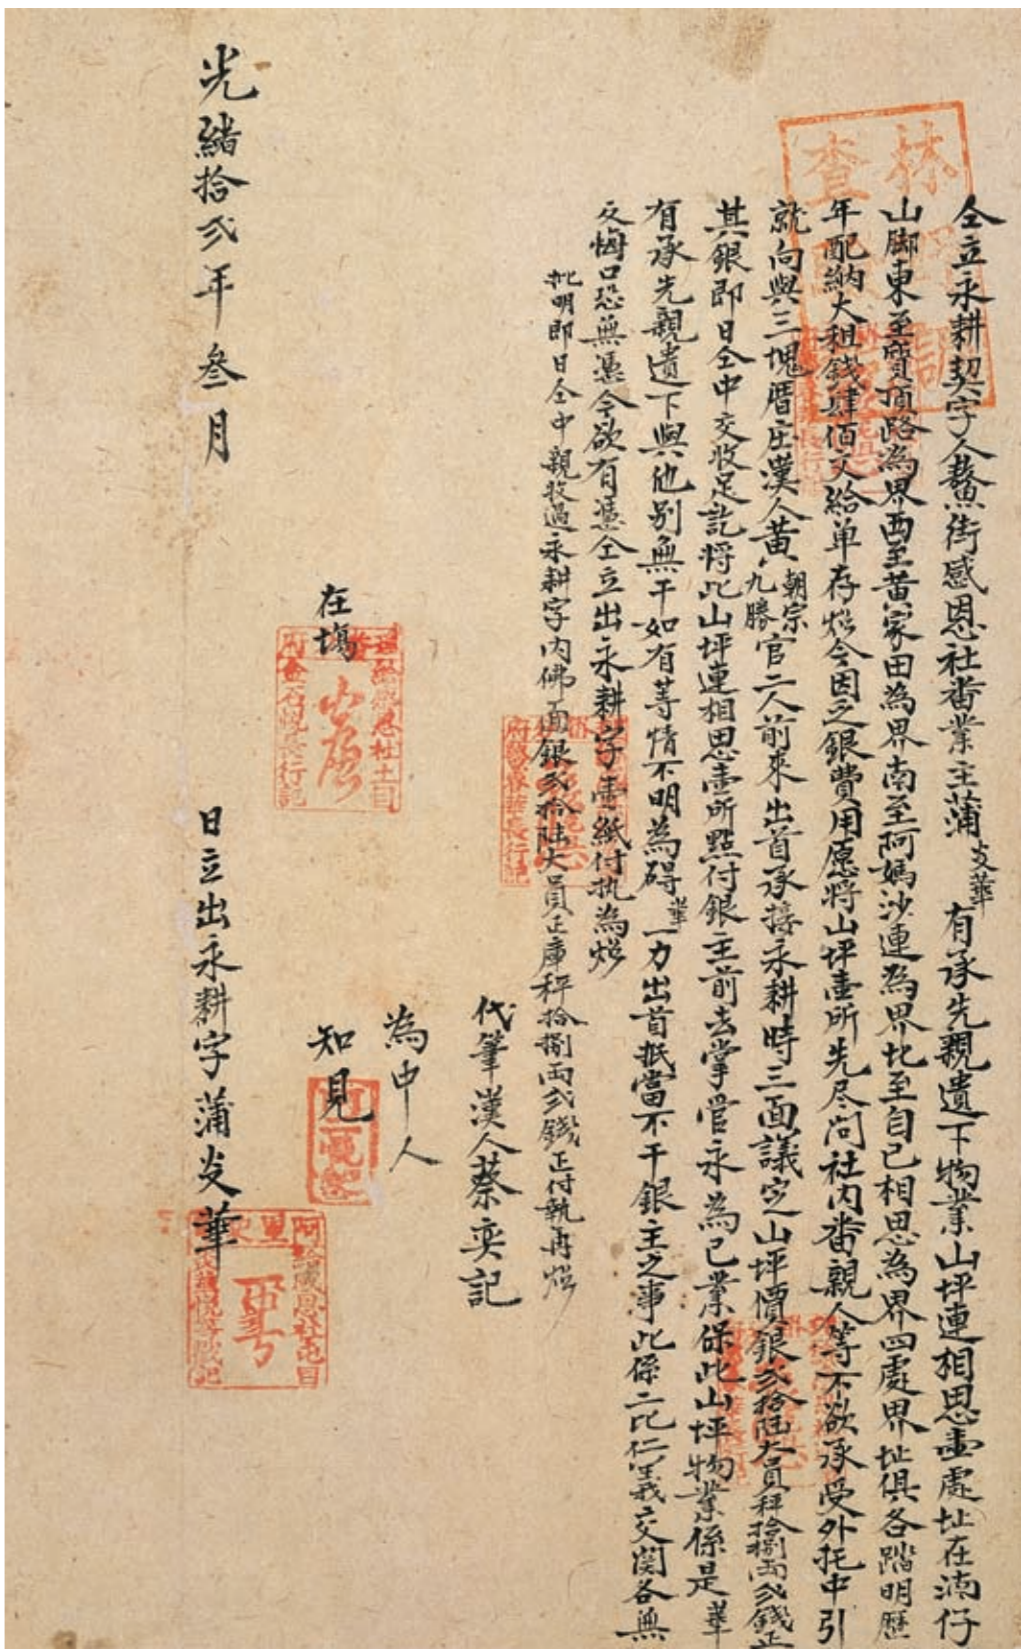 仝立永耕契字人鰲街感恩社番業主蒲文華有承先親遺下物業山坪連相思壹處址在湳仔
山脚東至質頂路為界西至黃家田為界南至阿媽沙連為界北至自己相思為界四處界址俱各踏明歷
年配納大租錢肆佰文給单存炤今因乏銀費用愿將山坪壹所先尽问社内番親人等不欲承受外托中引
就向與三塊厝庄漢人黃朝宗九勝官二人前來出首承接永耕時三面議定山坪價銀弍拾陆大員秤拾捌両弍錢正
其銀即日仝中交收足訖將此山坪連相思壹所點付銀主前去掌管永為己業保此山坪物業係是華
有承先親遺下與他別無干如有等情不明為碍華一力出首抵當不干銀主之事此係二比仁義交関各無
反悔口恐無憑今欲有憑仝立出永耕字壹紙付执為炤
批明即日仝中親收過永耕字内佛面銀弍拾陆大員正庫秤拾捌両弍錢正付執再炤
代筆漢人蔡奕記
為中人
知見
在塲
光緒拾弍年叁月
日立出永耕字蒲文華
林
查